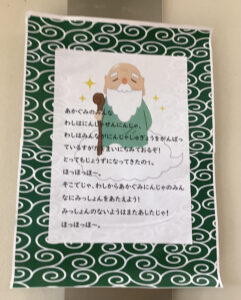 あかぐみのみんな
わしはにんじゃせんにんじゃ。
わしはみんながにんじゃしゅぎょうをがんばっ
ているすがた まいにちみておるぞ!
とってもじょうずになってきたのう。
ほっほっほ〜。
そこでじゃ、わしからあかぐみにんじゃのみん
なにみっしょんをあたえよう!
みっしょんのないようはまたあしたじゃ!
ほっほっほ〜。